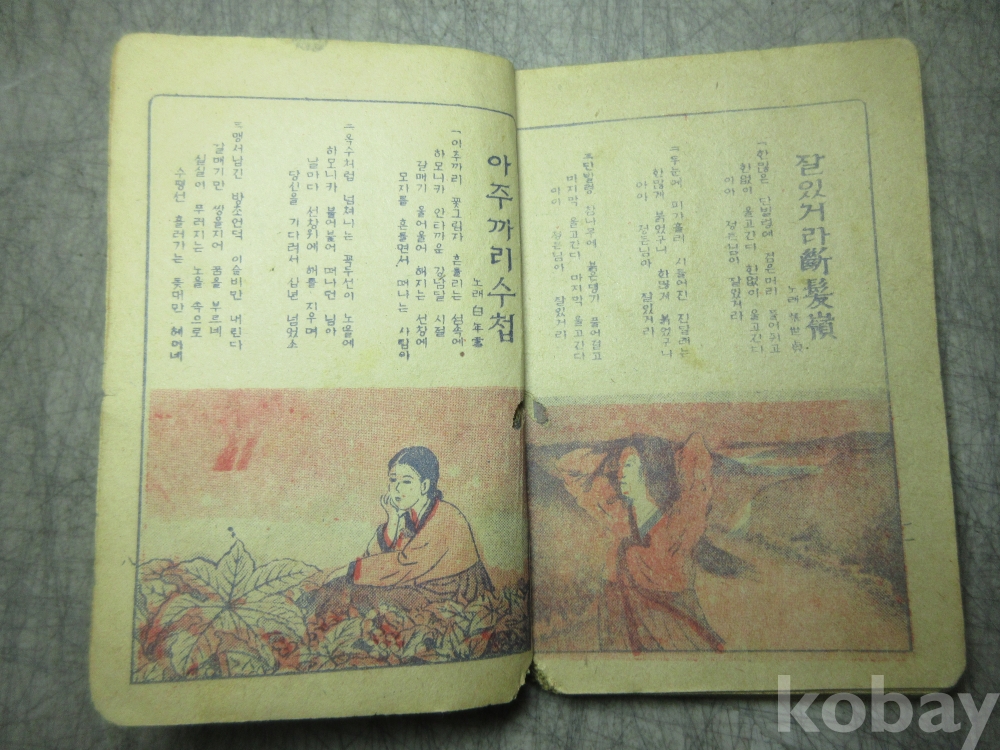 잘있거라斷髮嶺
노래
一한많은 단발령에 검은머리
한없이 울고간다 한없이 울고간다
아아 정든님아 잘있거라
二두눈에 피가흘러 시들어진 진달래는
한많게 붉었구나 한많게 붉었구나
아아 정든님아 잘있거라
三단발령 참나무에 붉은댕기 풀어걸고
마지막 울고간다 마지막 울고간다
아아 정든님아 잘있거라
아주까리수첩
노래 白年雪
一아주까리 꽃그림자 흔들리는 섬속에
하모니카 안타까운 강남달 시절
갈매기 울어울어 해지는 선창에
모자를 흔들면서 떠나는 사람아
二옥수처럼 넘쳐나는 꽃두선이 노을에
하모니카 불어불어 떠나던 님아
날마다 선창키에 해를 지우며
당신을 기다려서 삼년 넘었소
三맹서남긴 방초언덕 이슬비만 내린다
갈매기만 쌍을지어 꿈을 부르네
실실이 무러지는 노을 속으로
수평선 흘러가는 돛대만 헤이네
kobay